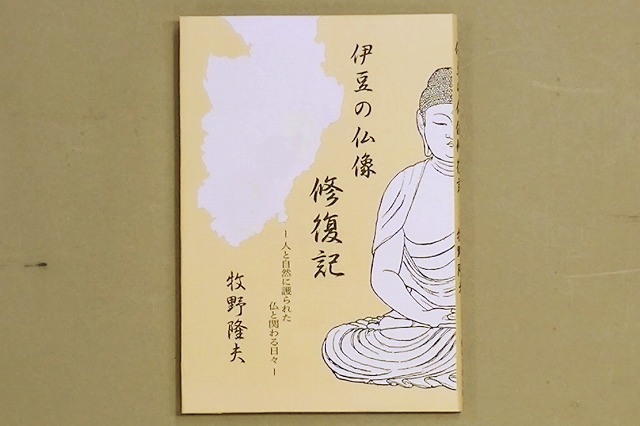 伊豆の仏像
修復記
ー人と自然に護られた
仏と関わる日々ー
牧野隆夫